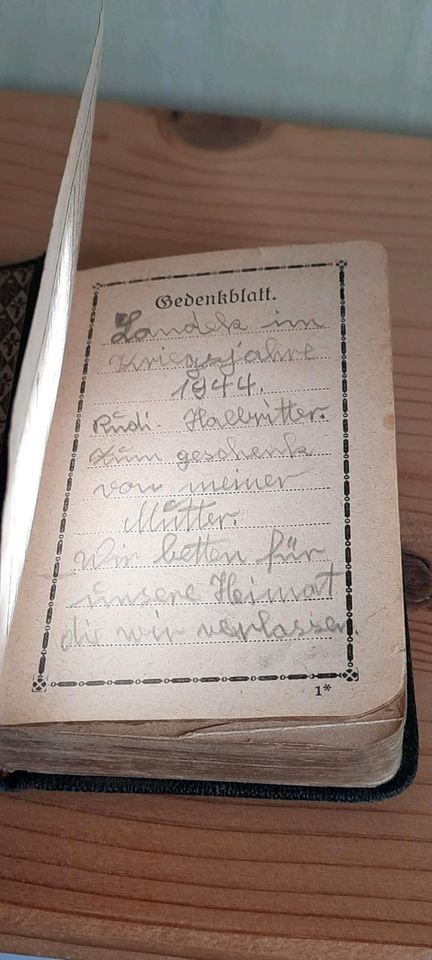 Gedenkblatt.
Landek im
Kriegsjahre
1944.
Rudi. Halbritter.
Zum geschenk
von meiner
Mutter.
Wir betten für
unsere Heimat
die wir verlassen.
1*